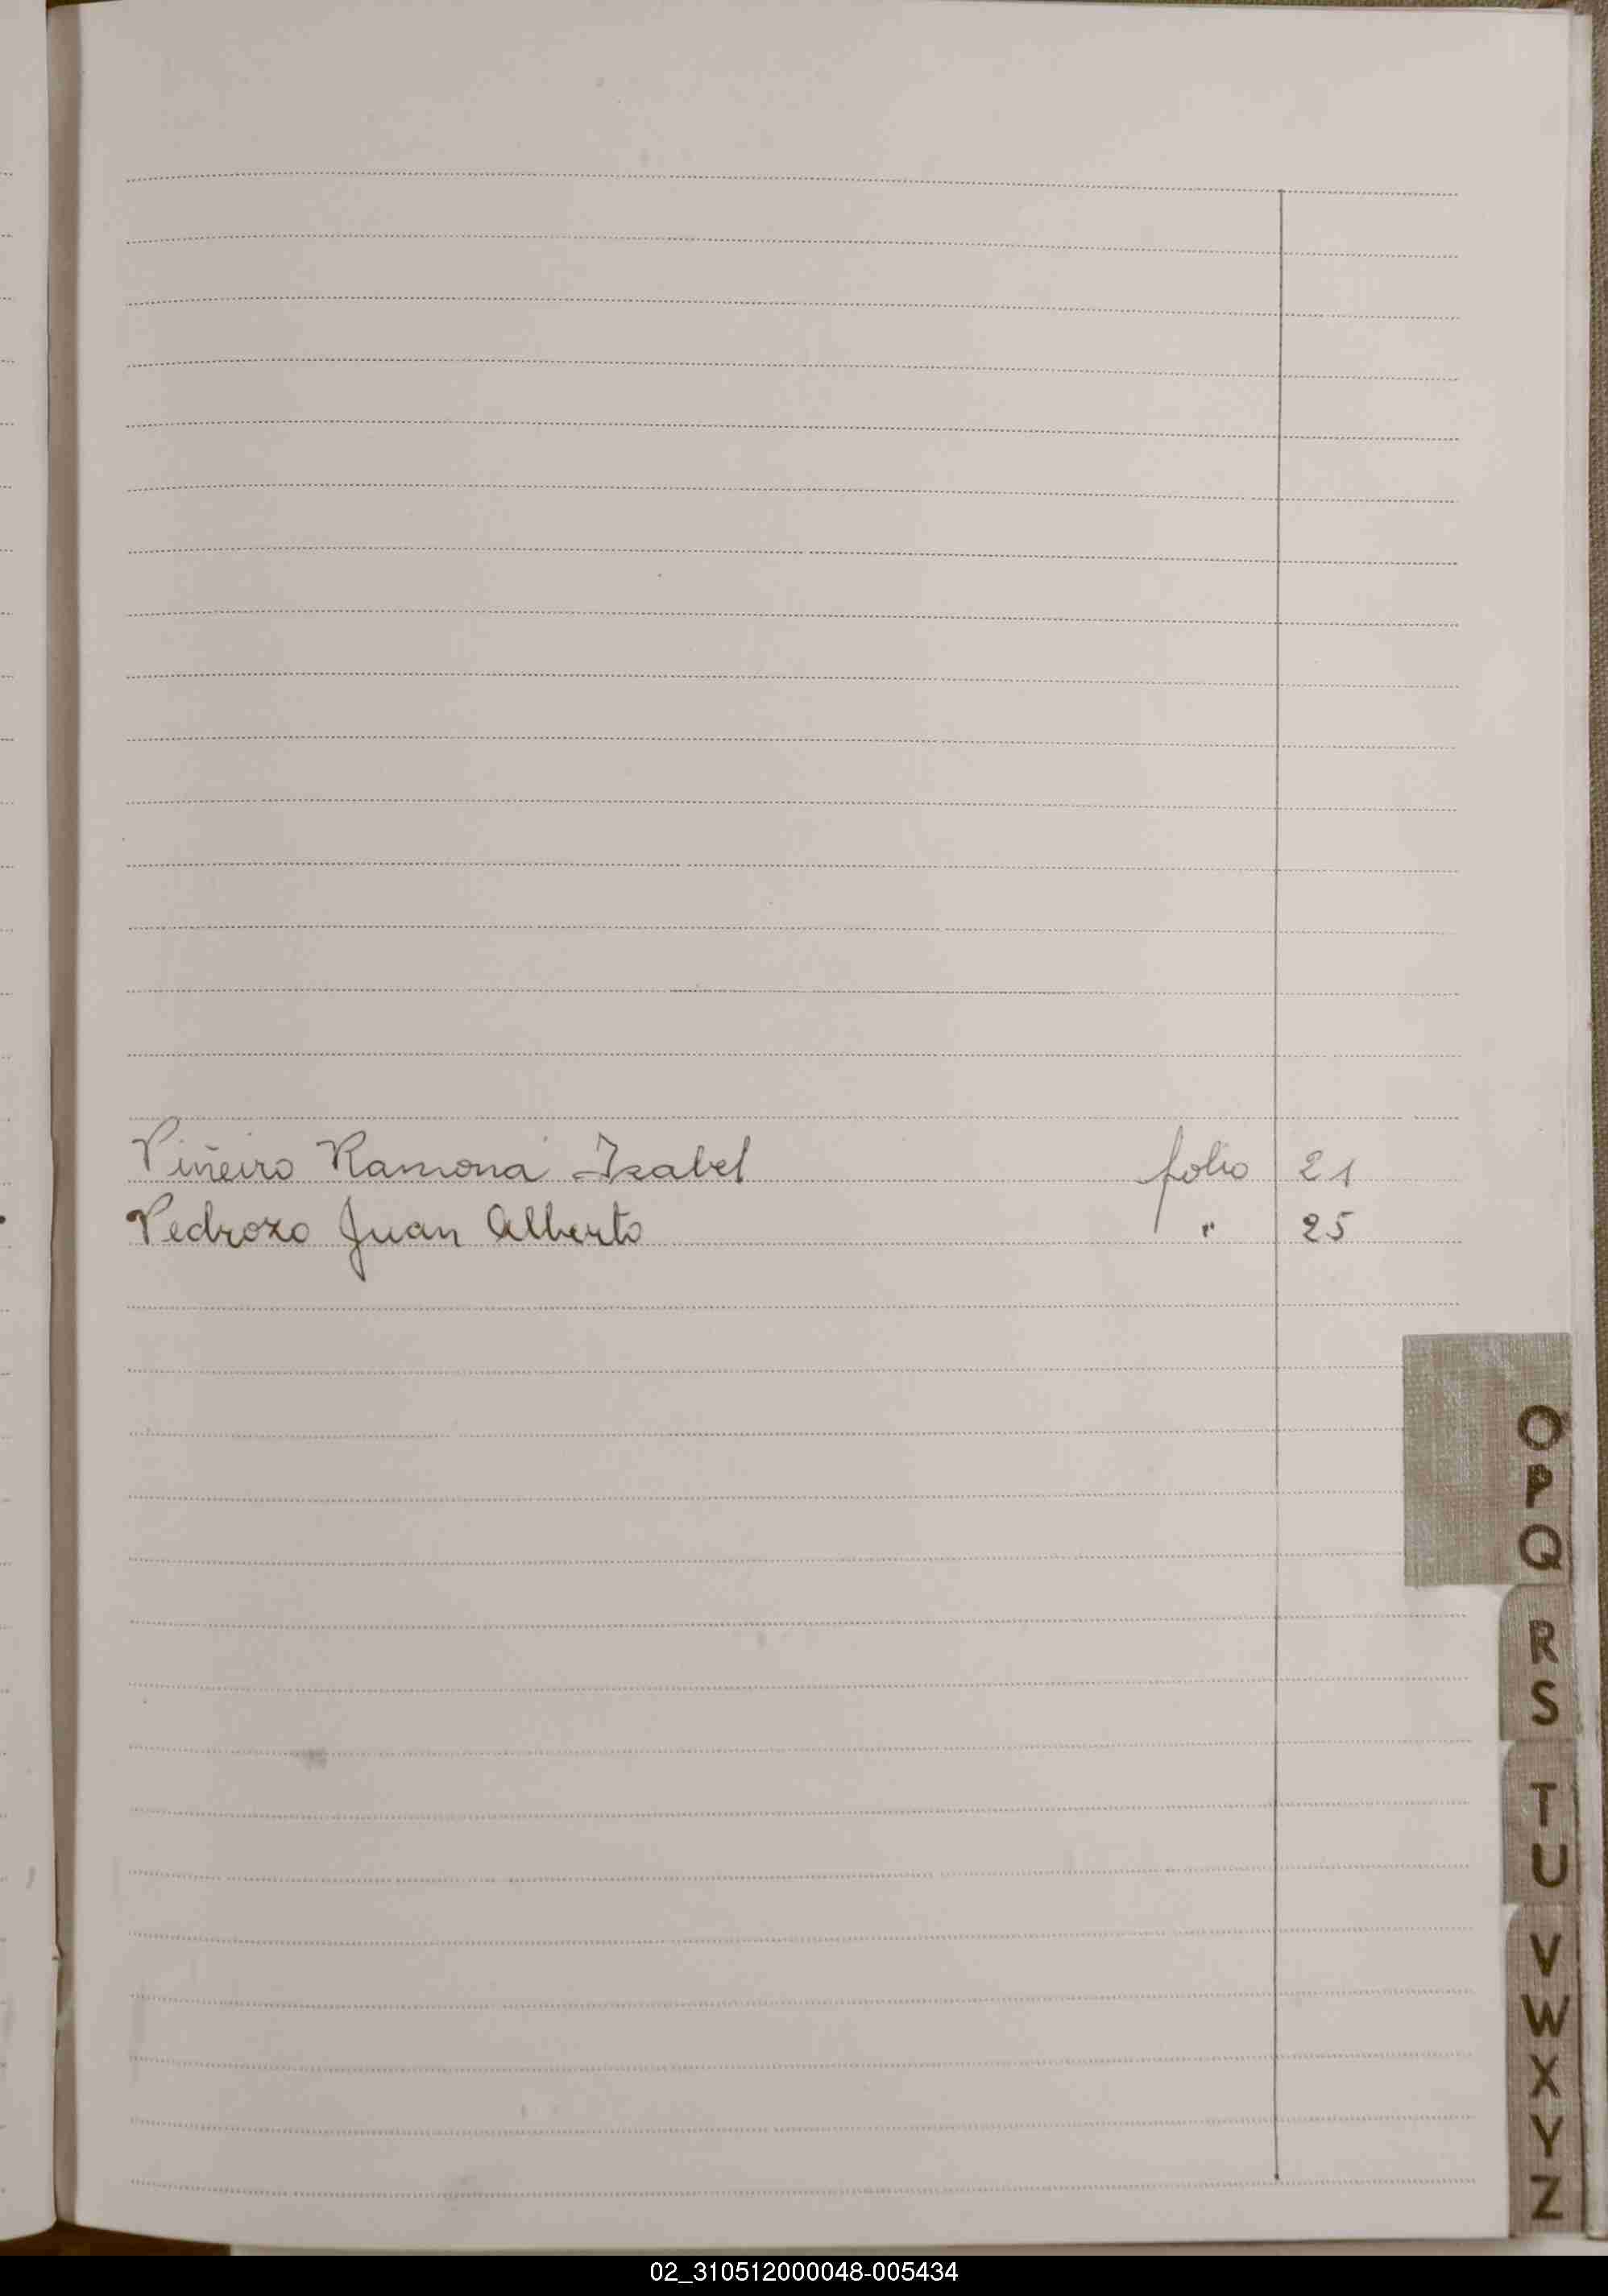 Piñeiro Ramona Isabel folio 21
Pedrozo Juan Alberto " 25
O
P
Q
R
S
T
U
V
W
X
Y
Z
02_310512000048-005434